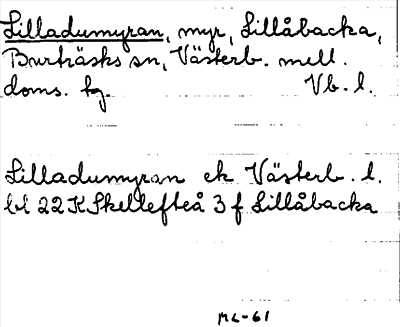 Lilladumyran, myr, Lillåbacka,
Burträsks sn, Västerb. mell.
doms. tg. Vb. l.
Lilladumyran ek Västerb. l.
bl 22 K Skellefteå 3 f Lillåbacka
ML-61